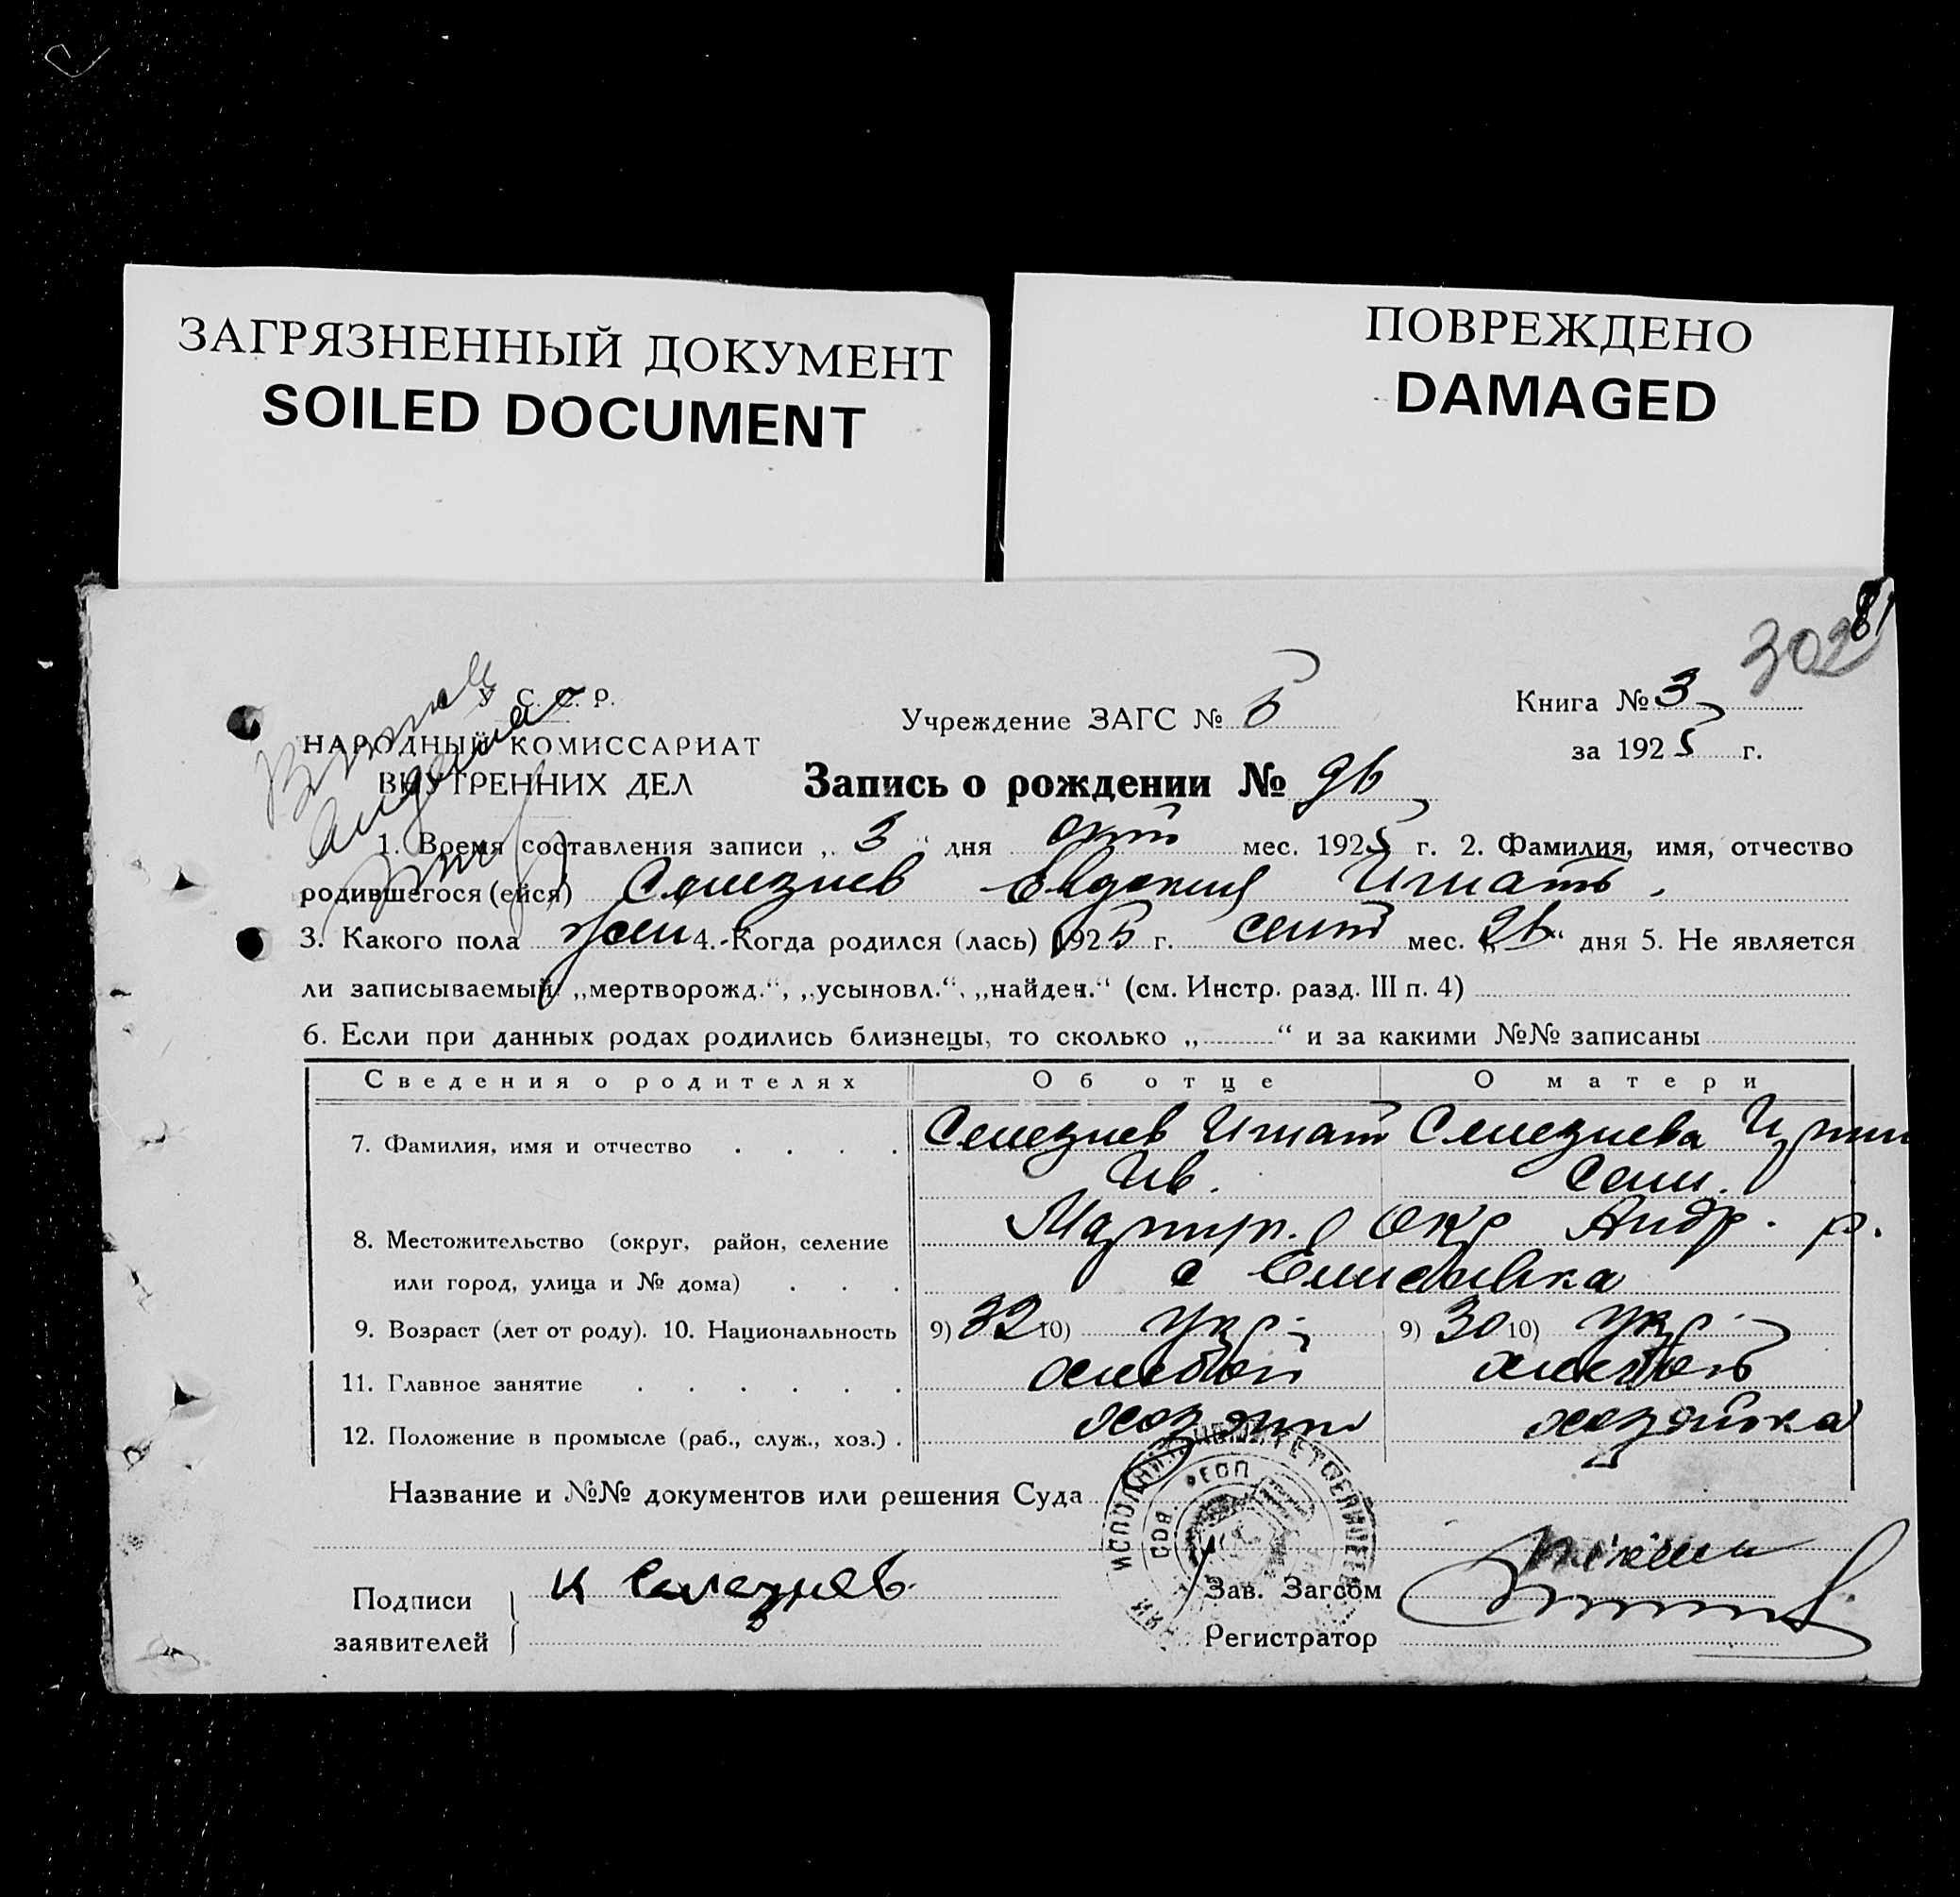 ЗАГРЯЗНЕННЫЙ ДОКУМЕНТ
SOILED DOCUMENT
ПОВРЕЖДЕНО
DAMAGED
81
302
У. С. С. Р.
НАРОДНЫЙ КОМИССАРИАТ
ВНУТРЕННИХ ДЕЛ
Учреждение ЗАГС №
Книга № 3
за 1925 г.
Запись о рождении №
1. Время составления записи „ 3 “ дня окт мес. 1925 г. 2. Фамилия, имя, отчество
родившегося (ейся) Селезнев Евдокия Игнать.
3. Какого пола жен 4. Когда родился (лась) 1925 г. сент мес. „ “ дня 5. Не является
ли записываемый: „мертворожд.“, „усыновл.“, „найден.“ (см. Инстр. разд. III п. 4)
6. Если при данных родах родились близнецы, то сколько „ “ и за какими №№ записаны
Сведения о родителях Об отце О матери
7. Фамилия, имя и отчество Селезнев Игнат Селезнева
Ив. Сем.
8. Местожительство (округ, район, селение Мариуп. окр Андр. р.
или город, улица и № дома) с
9. Возраст (лет от роду). 10. Национальность 9) 32 10) укр 9) 30 10) укр
11. Главное занятие хлебоп хлебоп
12. Положение в промысле (раб., служ., хоз.) хозяин хозяйка
Название и №№ документов или решения Суда
Подписи заявителей И Селезнев
Зав. Загсом
Регистратор